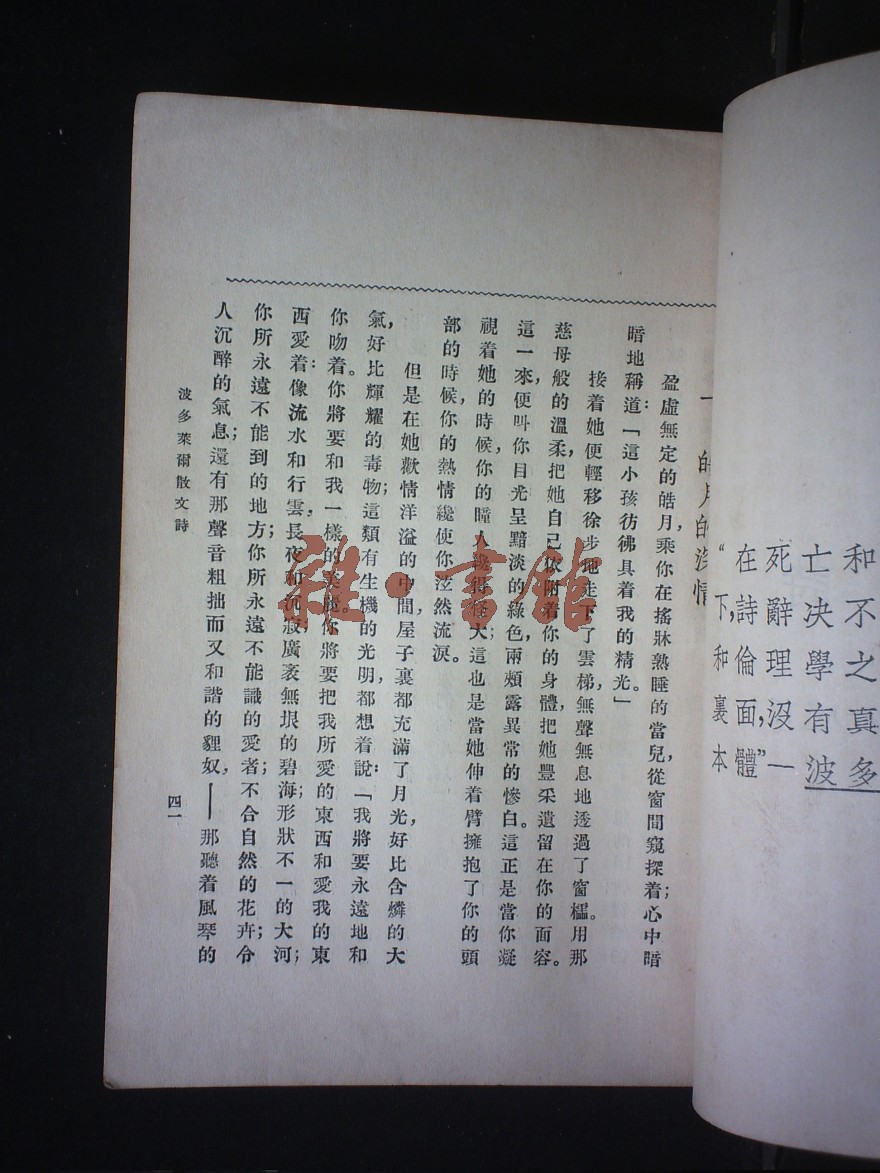 和不之真多
亡决學有波
死辭理沒一
在詩倫面,體”
“下,和裏本
一 皓月的深情
盈虛無定的皓月,乘你在搖牀熟睡的當兒,從窗間窺探着;心中暗
暗地稱道:「這小孩彷彿具着我的精光。」
接着她便輕移徐步地走下了雲梯,無聲無息地透過了窗櫺。用那
慈母般的溫柔,把她自己依附着你的身體,把她豐采遺留在你的面容。
這一來,便叫你目光呈黯淡的綠色,兩頰露異常的慘白。這正是當你凝
視着她的時候,你的瞳人纔得怪大;這也是當她伸着臂擁抱了你的頭
部的時候,你的熱情纔使你泫然流淚。
但是在她歡情洋溢的中間,屋子裏都充滿了月光,好比含燐的大
氣,好比輝耀的毒物;這類有生機的光明,都想着說:「我將要永遠地和
你吻着。你將要和我一樣的美麗。你將要把我所愛的東西和愛我的東
西愛着:像流水和行雲,長夜和沉寂;廣袤無垠的碧海;形狀不一的大河;
你所永遠不能到的地方;你所永遠不能識的愛者;不合自然的花卉;令
人沉醉的氣息;還有那聲音粗拙而又和諧的貍奴,——那聽着風琴的
波多萊爾散文詩
四一
雜·書館